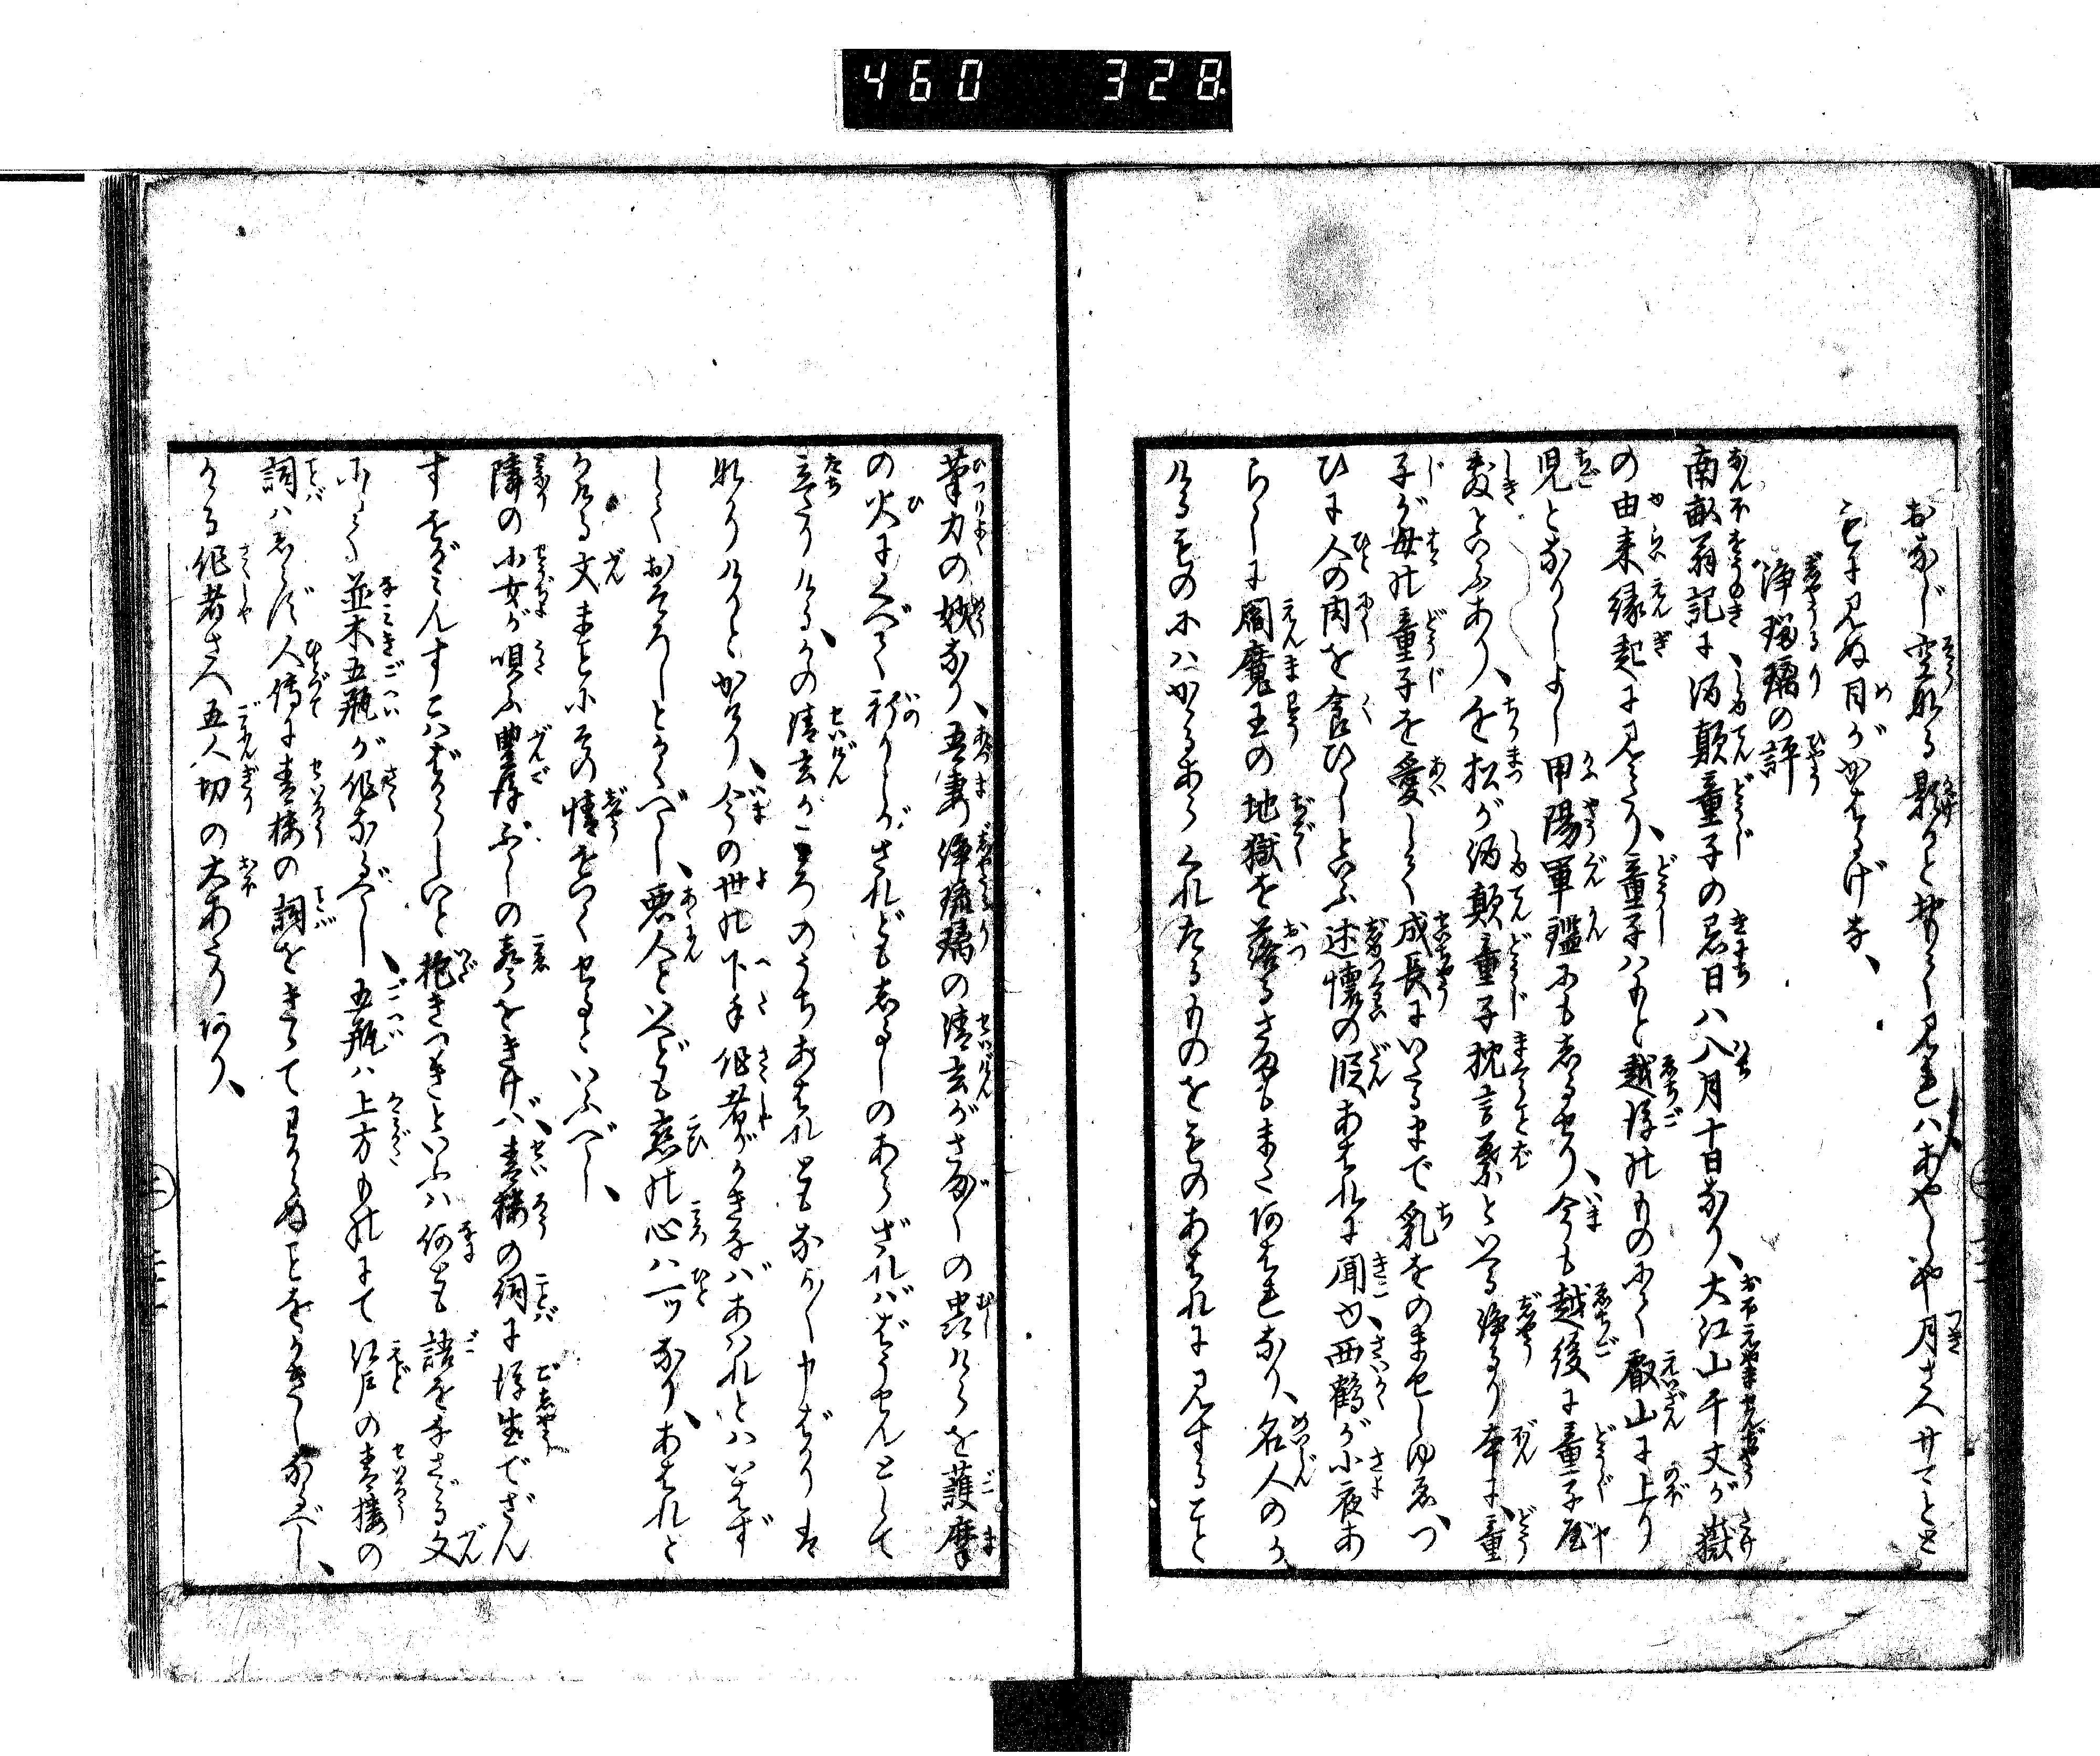 460 328
おなじ空なる影かと
見ればあやしや月さへサテとさ
そに見ぬ月がかはるげな、
浄瑠璃の評
南畝翁記に酒顛童子の忌日ハ八月十日なり、大江山千丈が嶽
の由来縁起に見えたり、童子ハもと越後のものにて叡山に上り
児となりしよし甲陽軍鑑にもしるせり、今も越後に童子屋
敷といふあり、ちか松が酒顛童子枕言葉といへる浄るり本に、童
子が母の童子を愛して成長にいたるまで乳をのませしゆゑ、つ
ひに人の肉を食ひしといふ述懐の段あはれに聞ゆ、西鶴が小夜あ
らしに閻魔王の地獄を落るさまもまたあはれなり、名人のか
けるものにハかゝるあらくれたるものをものあはれに見すること
筆力の妙なり、吾妻浄瑠璃の清玄がさくらの虫けらを護摩
の火にくべて祈りしがされどもしるしのあらざればばうぜんとして
立たりける、かの清玄がこゝろのうちあはれともなか〱申ばかりは
なかりけりとかけり、今の世の下手作者がかきなばあはれとハいはず
しておそろしとかくべし、悪人といへども恋の心ハ一ツなり、あはれと
かける文まことにその情をつくせりといふべし、
隣の小女が唄ふ豊後ぶしの声をきけば、青楼の詞に後生でざん
すをがみんすこハばからしいと抱きつきといふハ何とも語をなさゞる文
にて並木五瓶が作なるべし、五瓶ハ上方ものにて江戸の青楼の
詞ハしらず、人傳に青楼の詞をきゝてわからぬことをかきしなるべし、
かゝる作者さへ五人切の大あたりあり、